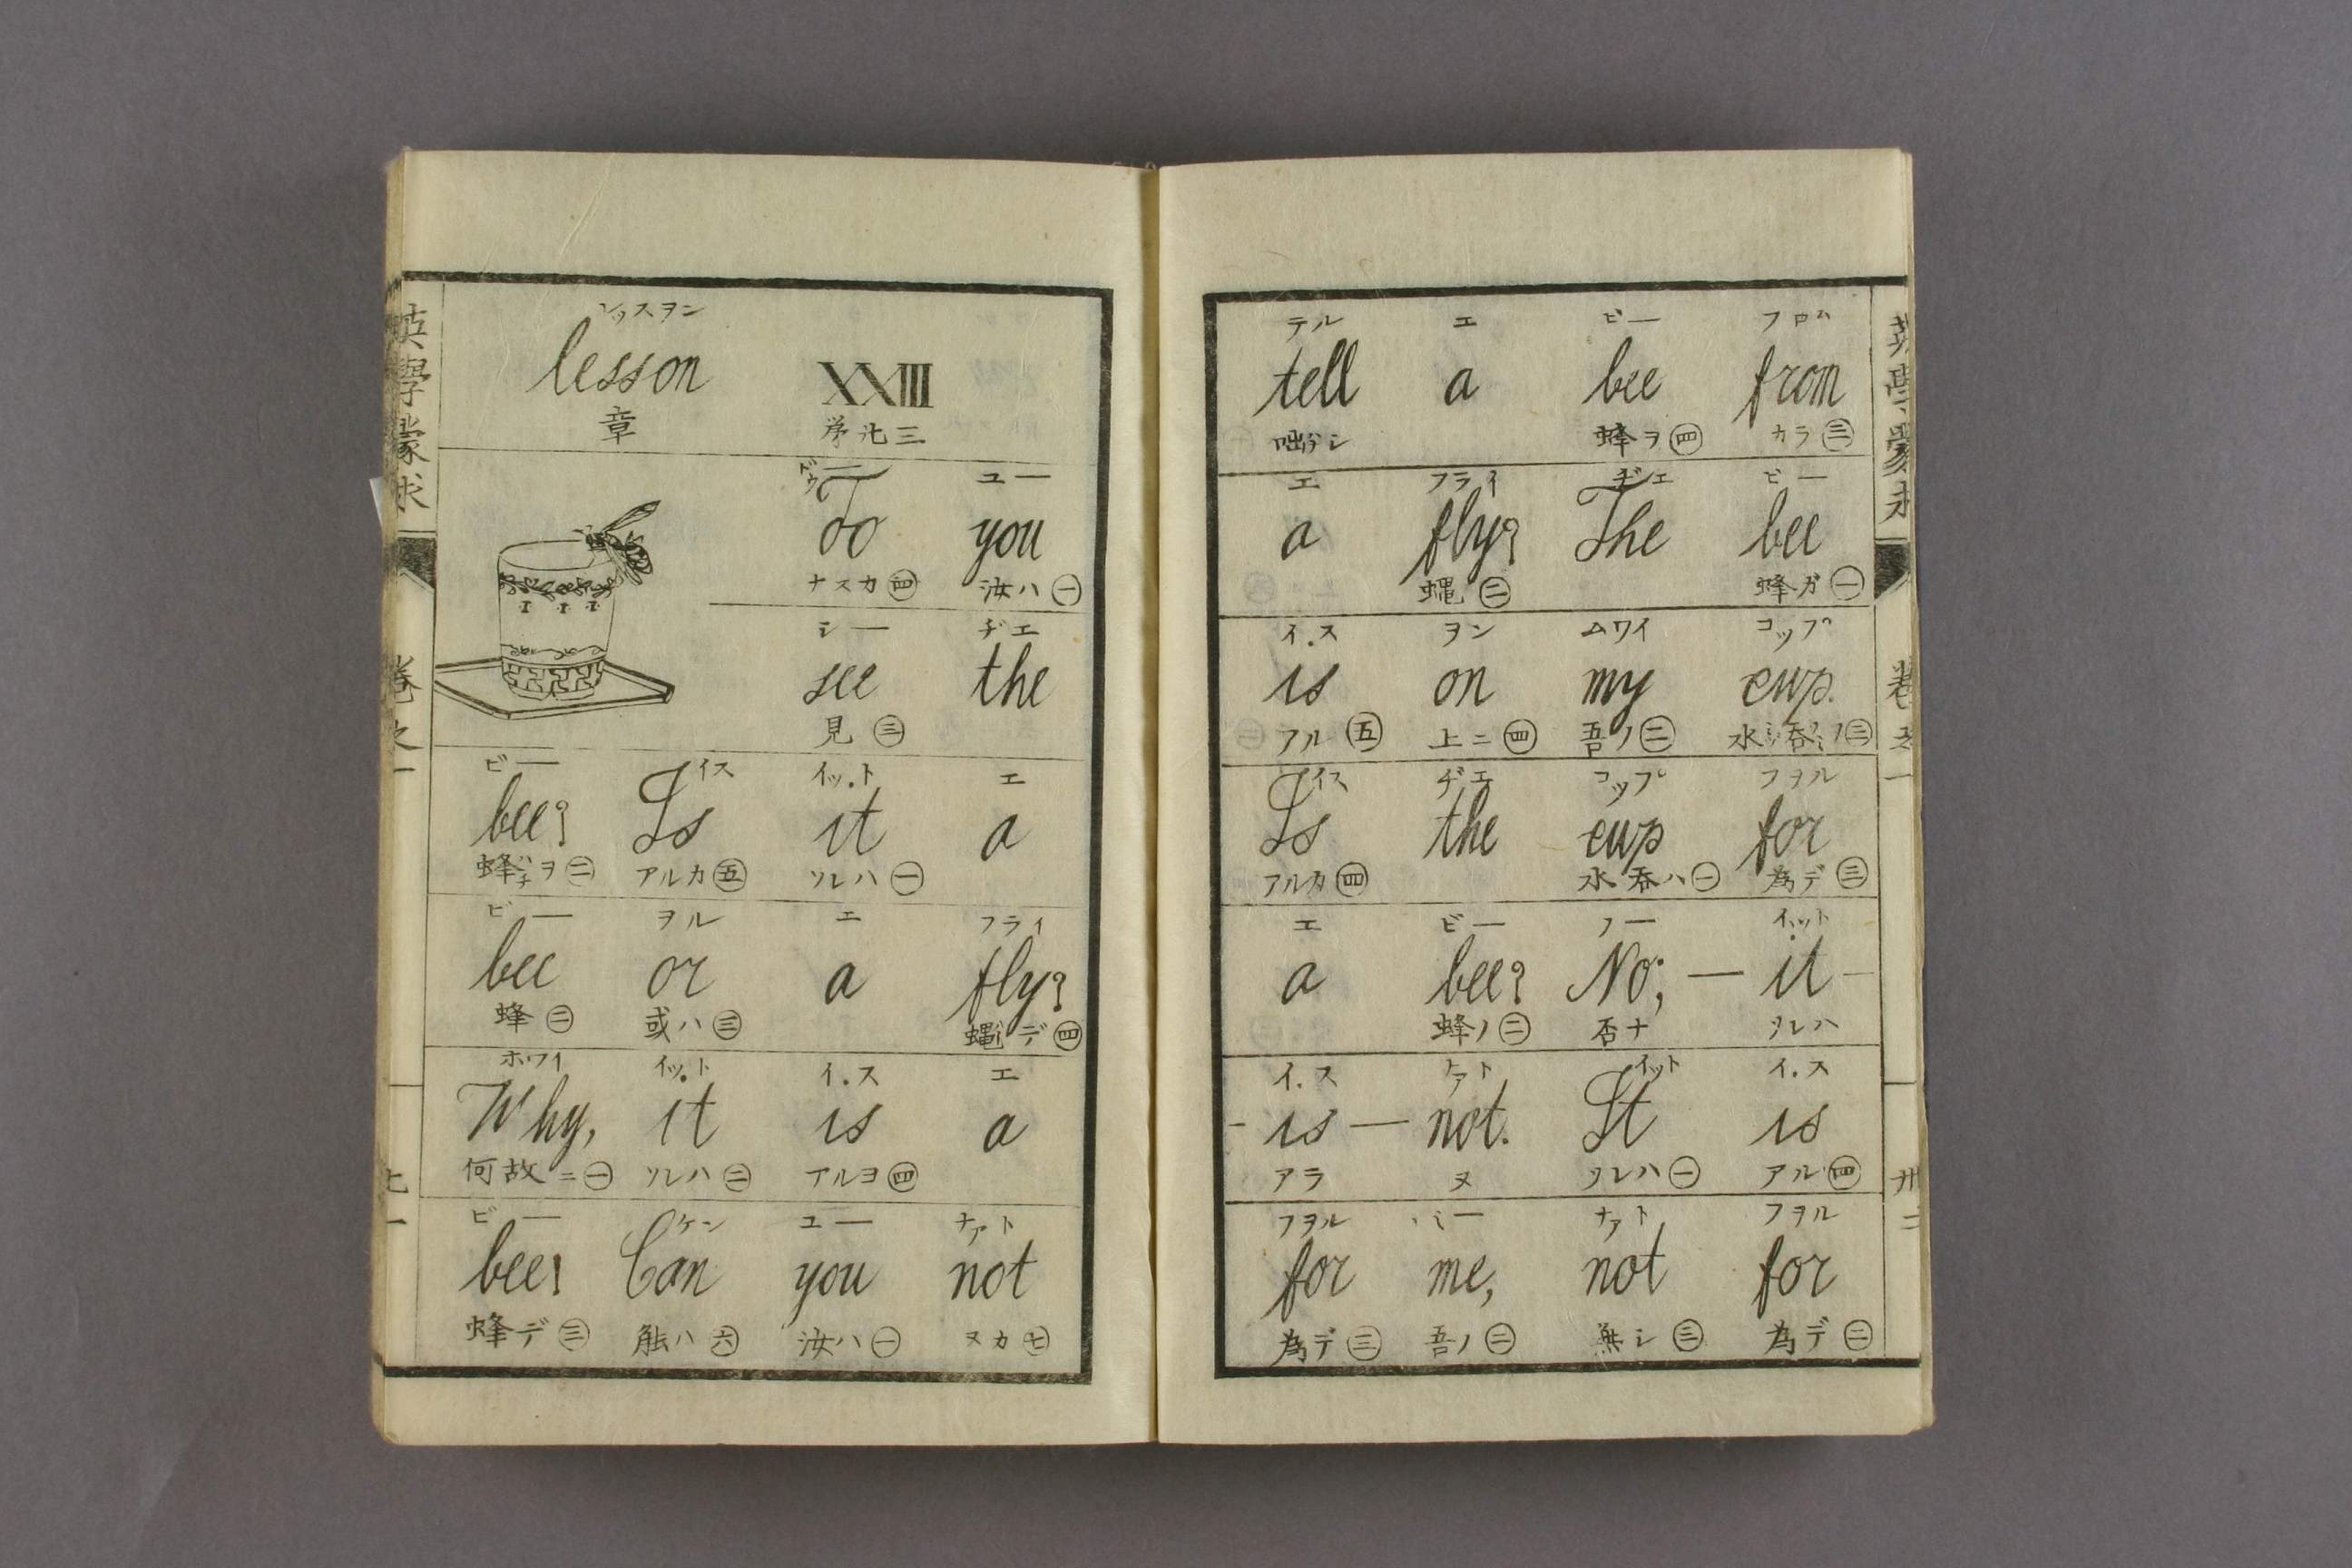 英學蒙求
卷之一
レッスヲン
lesson XXIII
章 第廿三
ドゥー ユー
Do you
ナスカ㊃ 汝ハ㊀
シー ヂエ
see the
見㊂
ビー イス イッ.ト エ
bee? Is it a
蜂ハチヲ㊁ アルカ㊄ ソレハ㊀
ビー ヲル エ フライ
bee or a fly?
蜂㊁ 或ハ㊂ 蠅デ㊃
ホワイ イッ.ト イ.ス エ
Why, it is a
何故ニ㊀ ソレハ㊁ アルヨ㊃
ビー ケン ユー ナアト
bee! Can you not
蜂デ㊂ 能ハ㊅ 汝ハ㊀ ヌカ㊆
テル エ ビー フロム
tell a bee from
蜂ヲ㊃ カラ㊂
エ フライ ヂエ ビー
a fly? The bee
蠅㊁ 蜂ガ㊀
イ.ス ヲン ムワイ コップ
is on my cup.
アル㊄ 上ニ㊃ 吾ノ㊁ 水呑ノ㊂
イス ヂエ コップ フヲル
Is the cup for
アルカ㊃ 水呑ハ㊀ 為デ㊂
エ ビー ノー イ.ット
a bee? No; — it —
蜂ノ㊁ 否ナ ソレハ
イ.ス ナアト イット イ.ス
- is — not. It is
アラ ヌ ソレハ㊀ アル㊃
フヲル ミー ナアト フヲル
for me, not for
為デ㊂ 吾ノ㊁ 無シ㊂ 為デ㊁
英學蒙求
卷之一